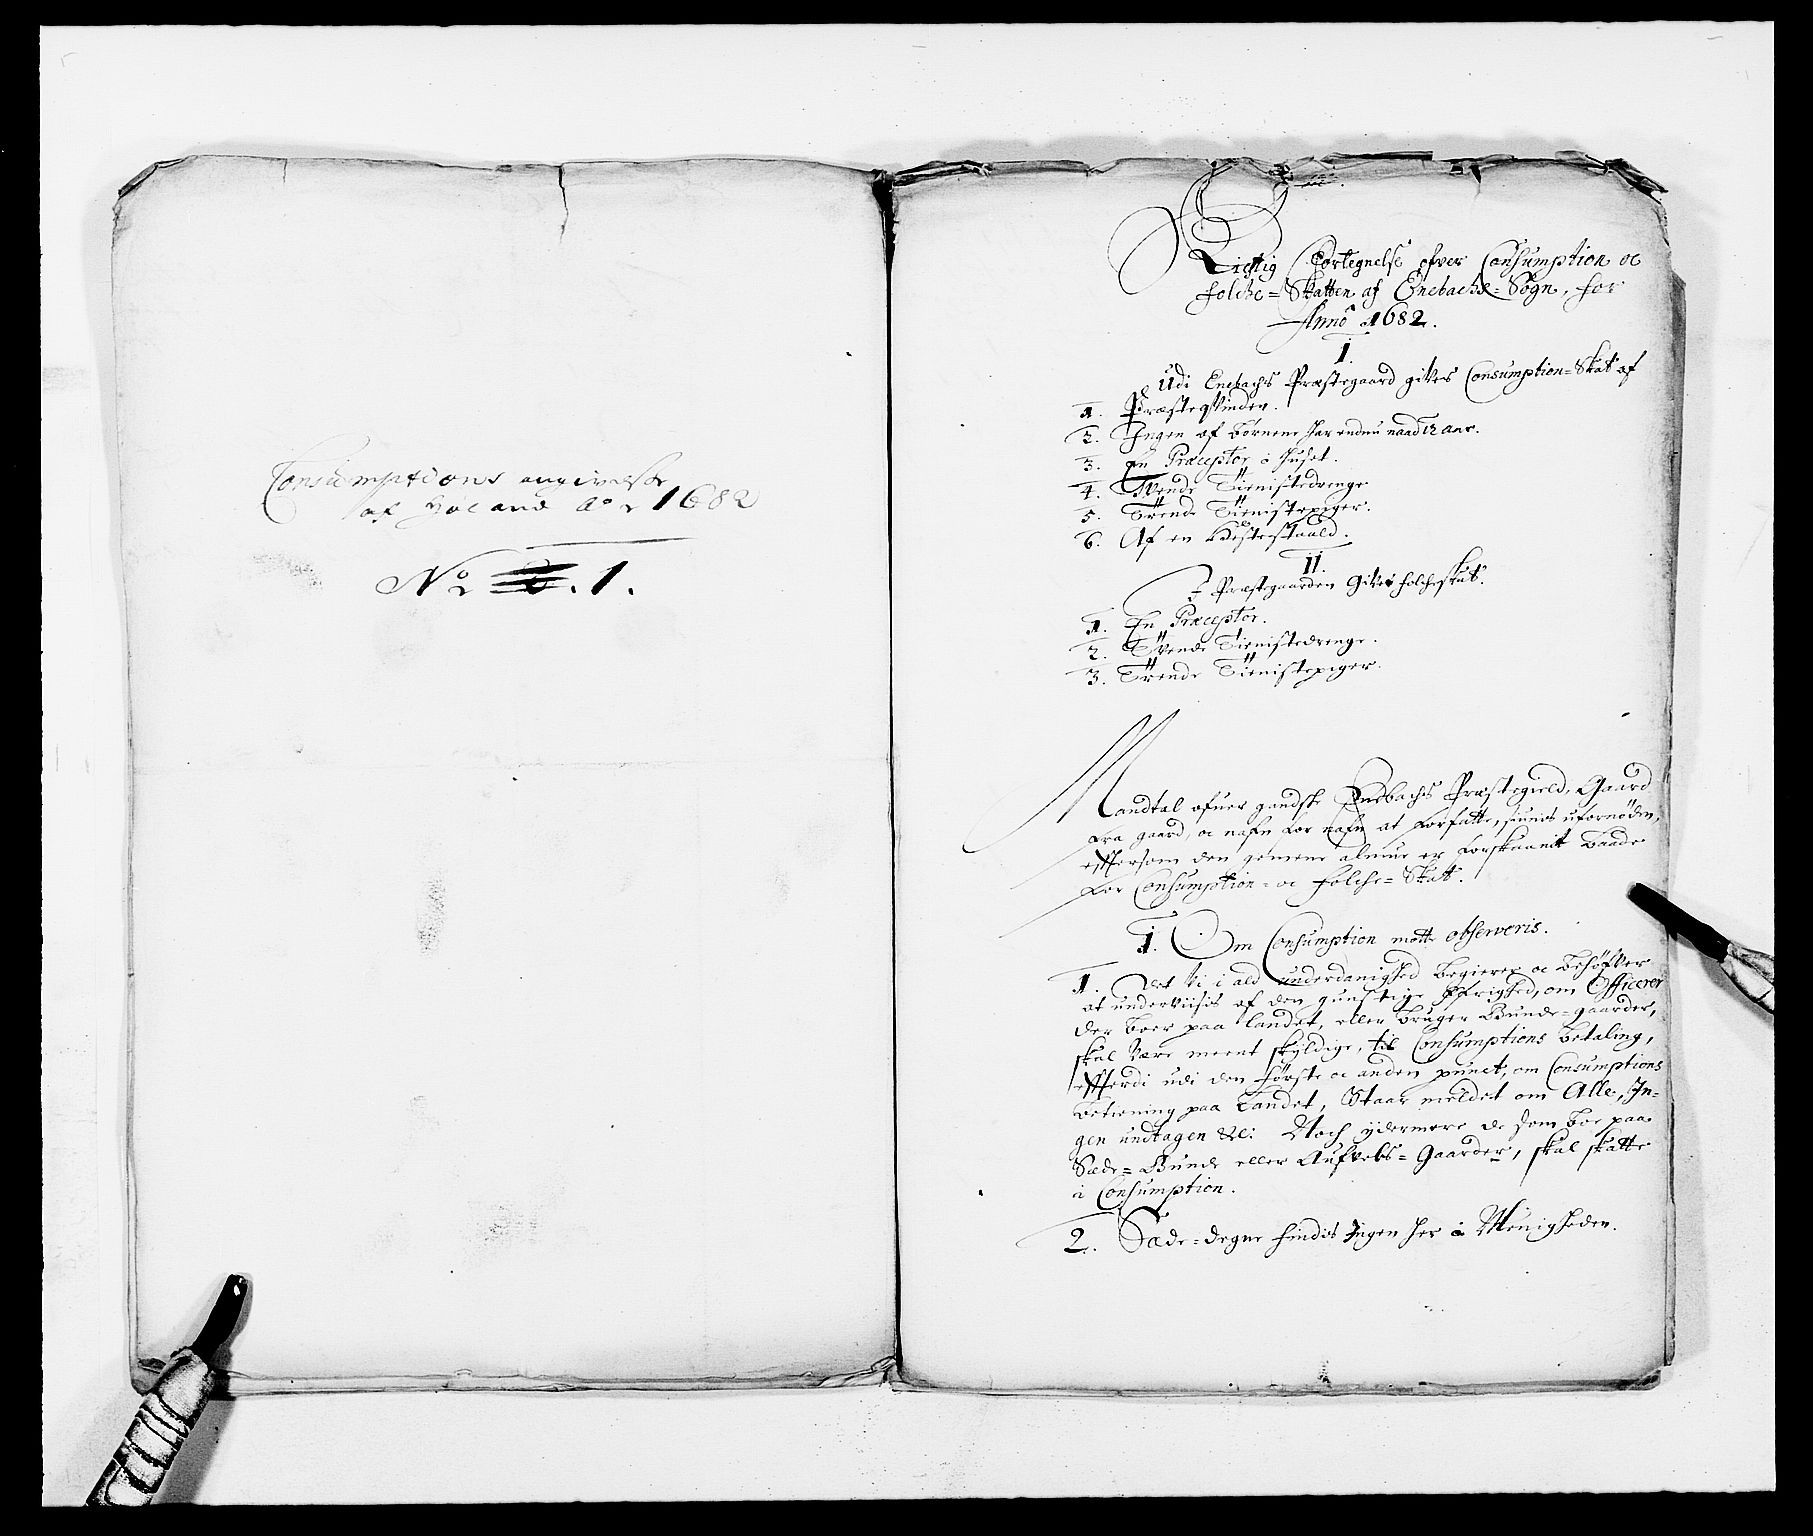 Consumptions angivelse
af Høland Ao 1682
No 1.
Rigtig Fortegnelse ofver Consumption oc
folche=Skatten af Enebachs=Sogn, for
Anno 1682.
I.
Udi Enebachs Præstegaard gives Consumption=Skat af
1. Præsteqvinden.
2. Ingen af Børnene har endnu naad 12 aar.
3. En Præceptor i huset.
4. Tvende Tienistedrenge
5. Trende Tienistepiger.
6. Af en
II.
I Præstegaarden Gives folcheskat.
1. En Præceptor.
2. Tvende Tienistedrenge.
3. Trende Tienistepiger.
Mandtal ofuer gandske Enebachs Præstegield, Gaard
fra gaard, oc nafn for nafn at forfatte, siunes ufornöden,
effersom den gemene almue er forskaanit baade
for Consumption= oc folche=Skatt.
I. Om Consumption motte observeris.
1. Det Vi i ald underdanighed begierer oc behöfver
at underviisis af den gunstige Öfrighed, om Officerer
der boer paa landet, eller bruger Bunde=gaarder,
skal være meent skyldige, til Consumptions betaling,
efferdi udi den første oc anden punct, om Consumptions
paa Landet, Staar meldet om Alle, In=
gen undtagen &c: Noch ydermere de som boe paa
Sæde= Bunde eller Aufvels=Gaarder, skal skatte
i Consumption.
2. Sæde=degne findis Ingen her i Menigheden.